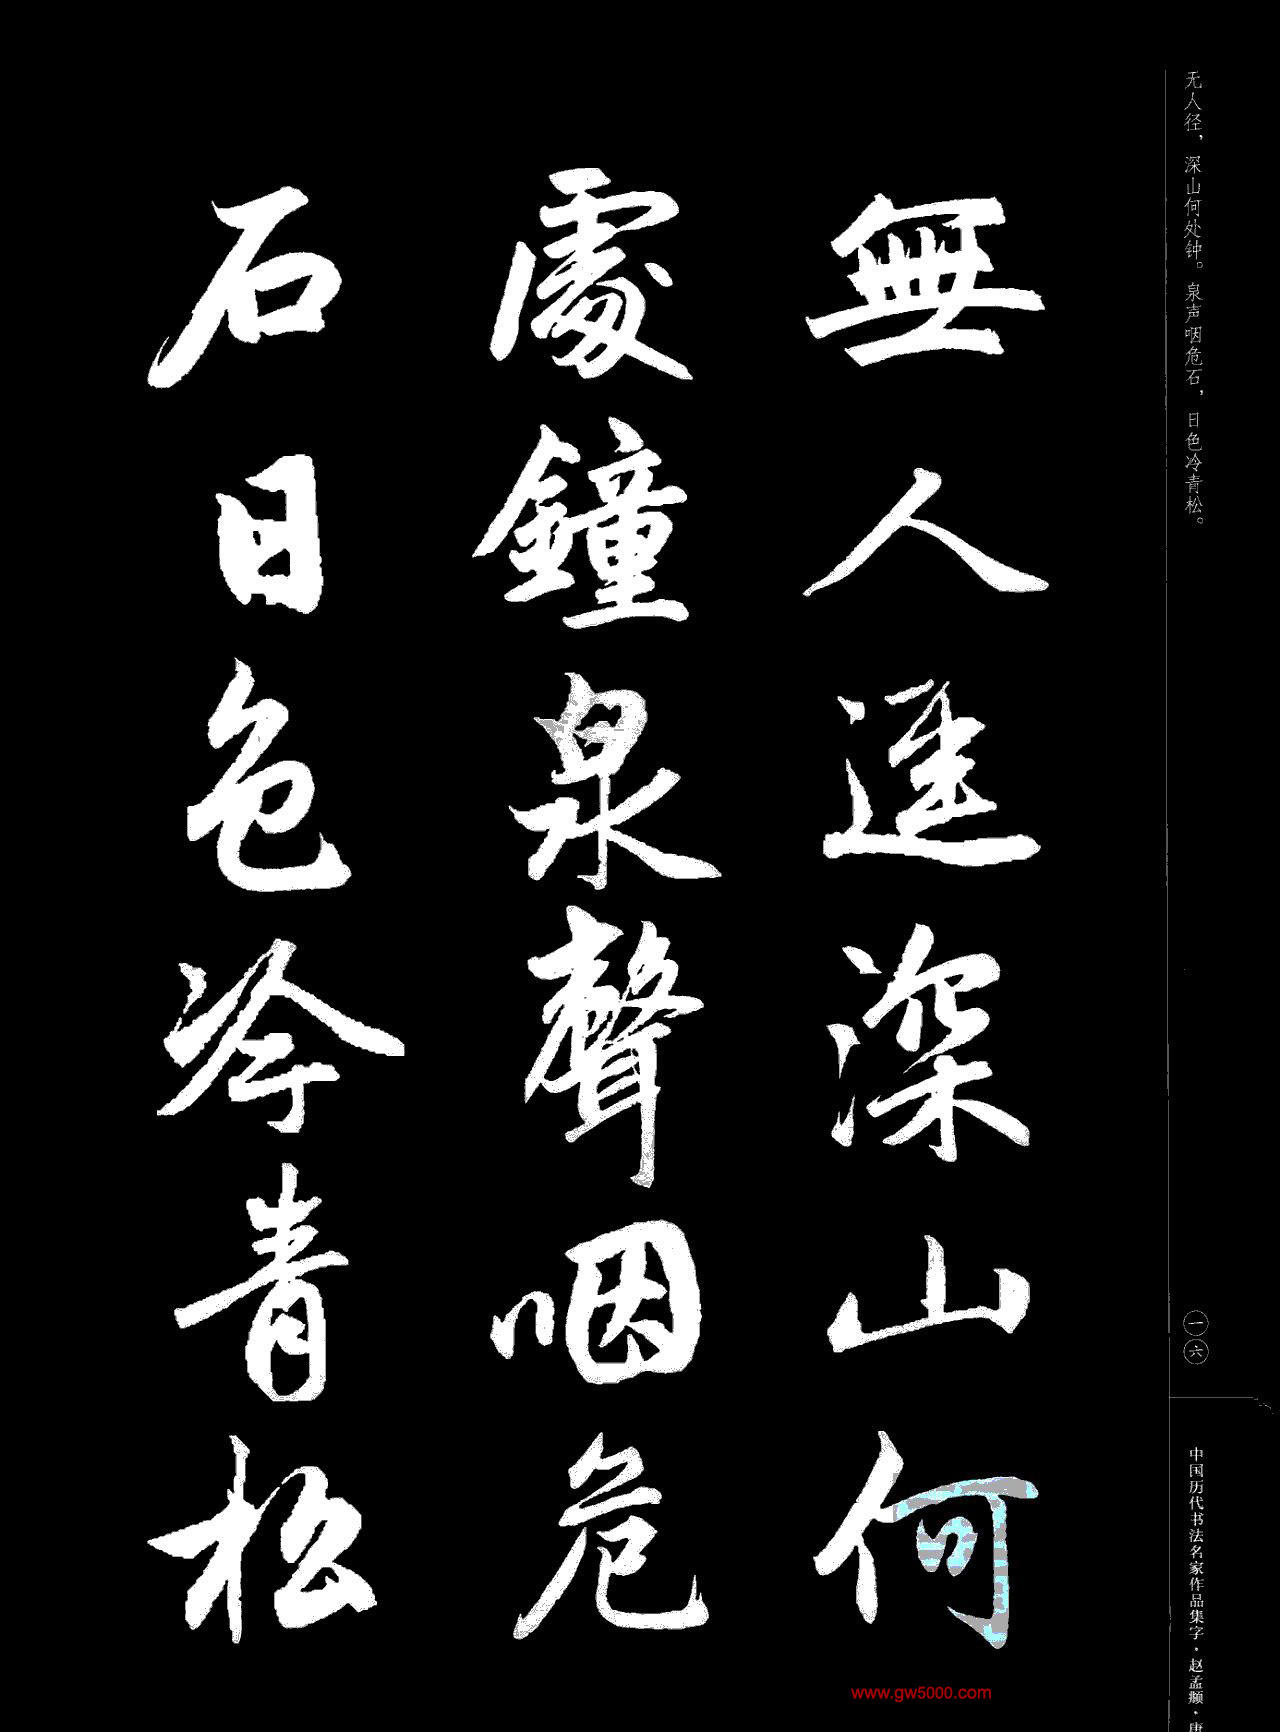 无人径，深山何处钟。泉声咽危石，日色冷青松。
一六
中国历代书法名家作品集字·赵孟頫·
無人逕深山何
處鐘泉聲咽危
石日色冷青松
www.gw5000.com